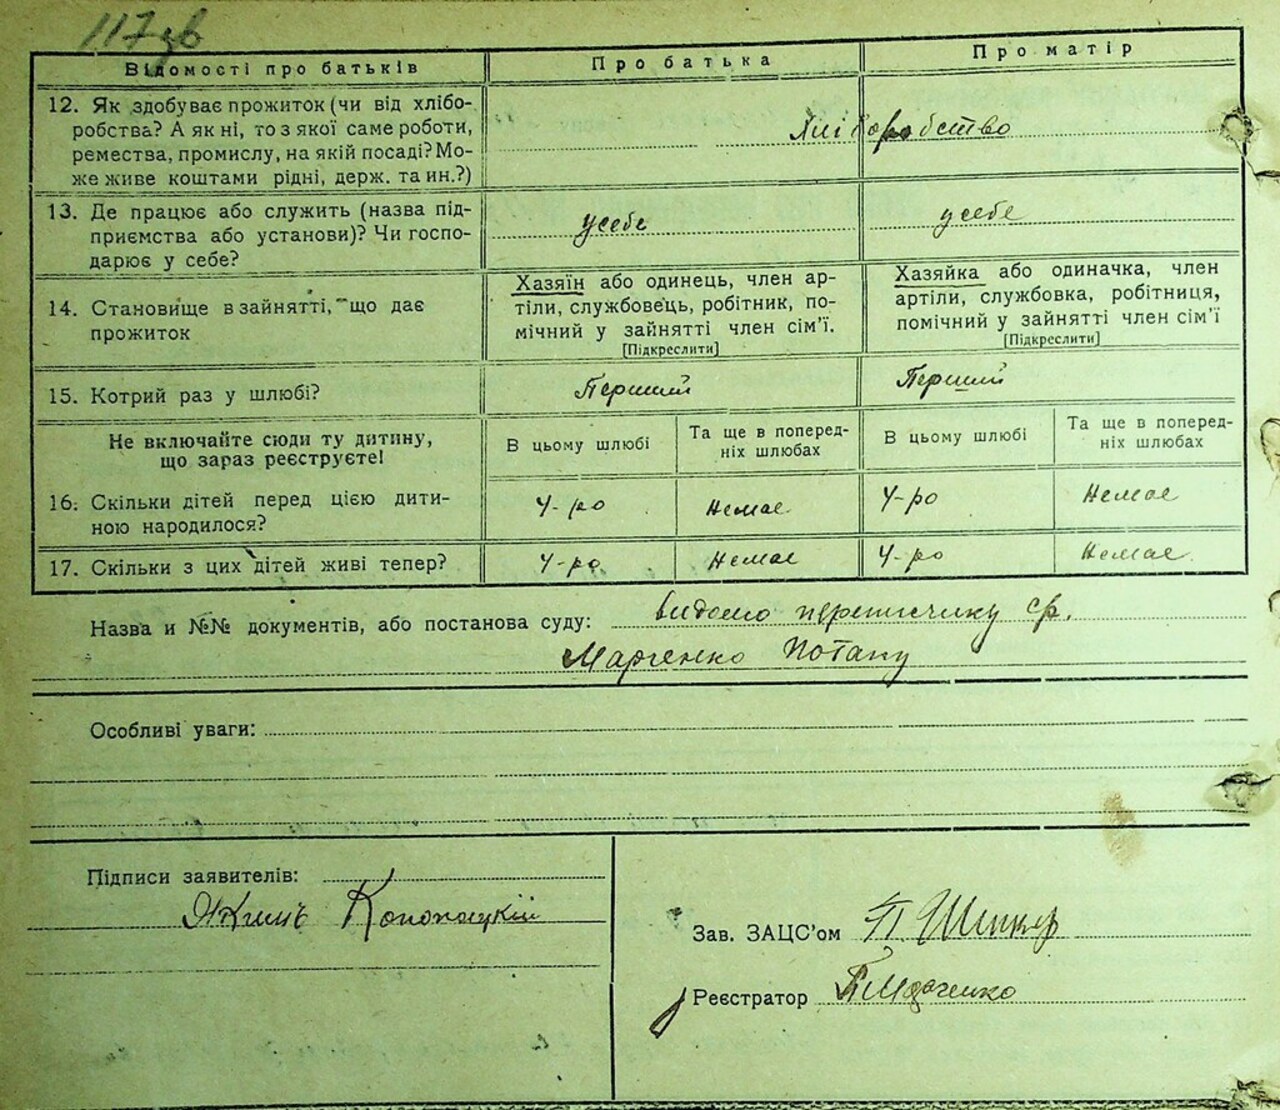 117 зв
Відомості про батьків
Про батька
Про матір
12. Як здобуває прожиток (чи від хлібо-
робства? А як ні, то з якої саме роботи,
ремества, промислу, на якій посаді? Мо-
же живе коштами рідні, держ. та ин.?)
Хліборобство
13. Де працює або служить (назва під-
приємства або установи)? Чи госпо-
дарює у себе?
усебе
усебе
14. Становище в зайнятті, що дає
прожиток
Хазяїн або одинець, член ар-
тіли, службовець, робітник, по-
мічний у зайнятті член сім'ї.
[Підкреслити]
Хазяйка або одиначка, член
артіли, службовка, робітниця,
помічний у зайнятті член сім'ї
[Підкреслити]
15. Котрий раз у шлюбі?
Перший
Перший
Не включайте сюди ту дитину,
що зараз реєструєте!
В цьому шлюбі
Та ще в поперед-
ніх шлюбах
В цьому шлюбі
Та ще в поперед-
ніх шлюбах
16. Скільки дітей перед цією дити-
ною народилося?
4-ро
Немає
4-ро
Немає
17. Скільки з цих дітей живі тепер?
4-ро
Немає
4-ро
Немає
Назва и №№ документів, або постанова суду: видомо перепичику ср.
Марченко Потапу
Особливі уваги:
Підписи заявителів:
Якимъ Конопацкій
Зав. ЗАЦС'ом П.
Реєстратор